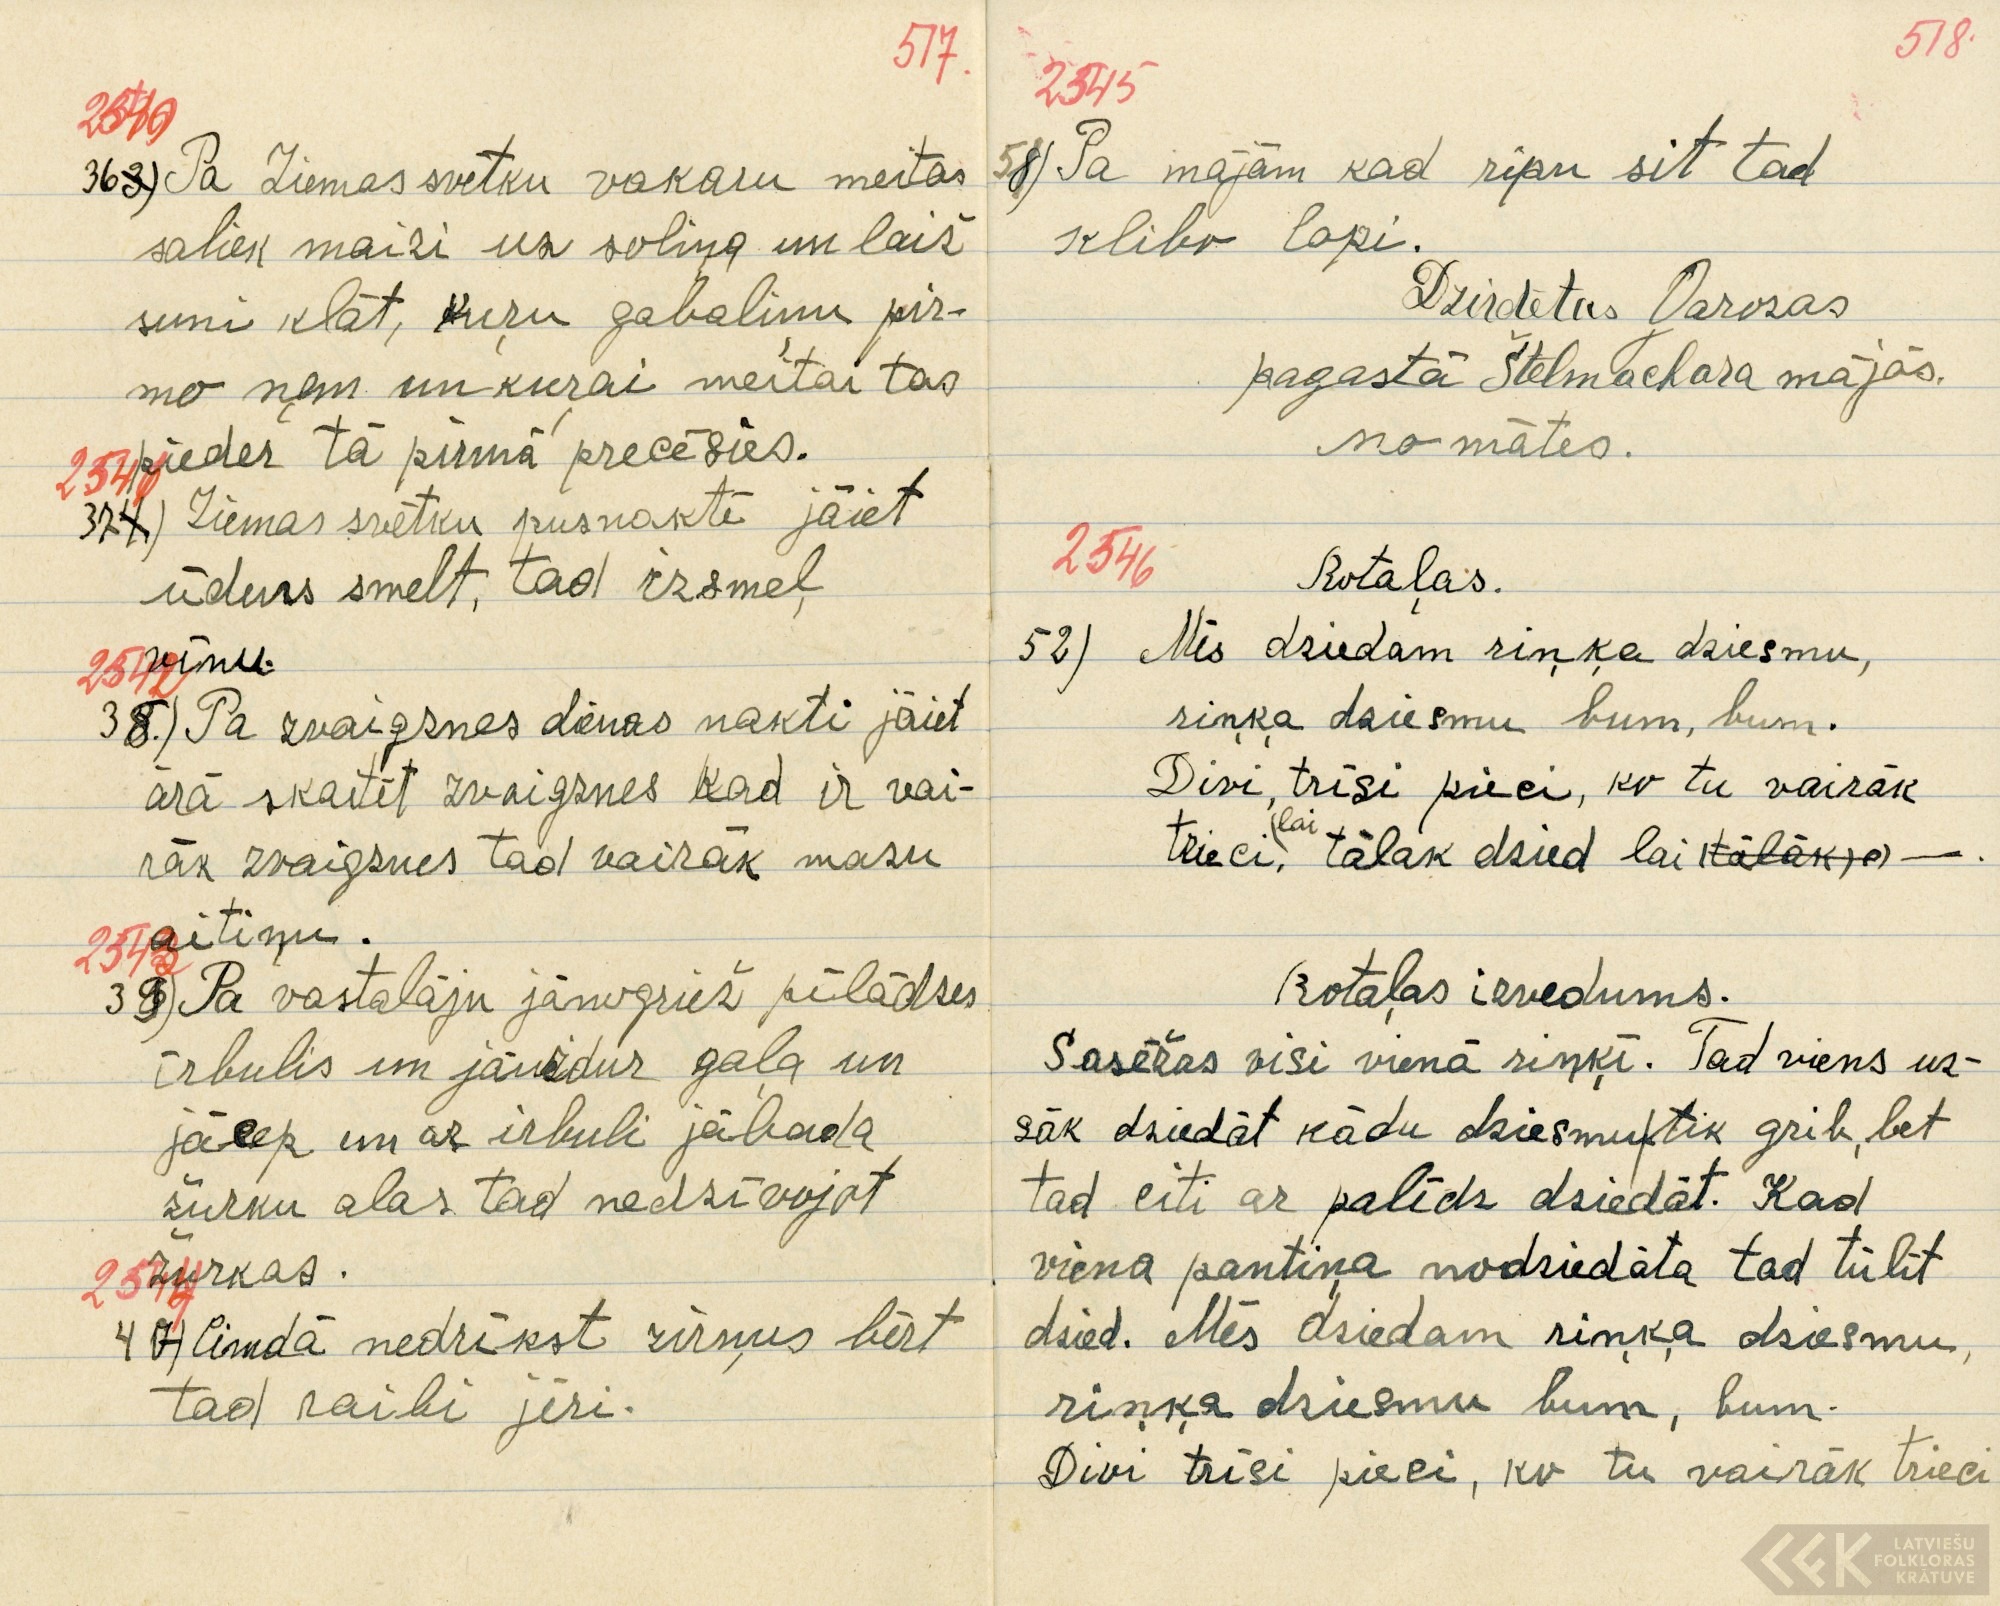 517.
2540
36) Pa Ziemassvētku vakaru meitas
saliek maizi uz soliņa un laiž
suni klāt, kuŗu gabaliņu pir-
mo ņem un kuŗai meitai tas
pieder tā pirmā precēsies.
2541
37) Ziemassvētku pusnaktē jāiet
ūdens smelt, tad izsmeļ
vīnu.
2542
38.) Pa zvaigznes dienas nakti jāiet
ārā skaitīt zvaigznes kad ir vai-
rāk zvaigznes tad vairāk mazu
aitiņu.
2543
39) Pa vastalāju jānogriež pīlādzes
irbulis un jāuzdur gaļa un
jācep un ar irbuli jābada
žurku alas tad nedzīvojot
žurkas.
2544
40) Cimdā nedrīkst zirņus bērt
tad raibi jēri.
518.
2545
58) Pa mājām kad ripu sit tad
klibo lopi.
Dzirdētas Ozrozas
pagastā Štelmachara mājās.
no mātes.
2546
Rotaļas.
52) Mēs dziedam riņķa dziesmu,
riņķa dziesmu bum, bum.
Divi, trīsi pieci, ko tu vairāk
trieci, lai tālak dzied lai tālāk, —.
Rotaļas izvedums.
Sasēžas visi vienā riņķī. Tad viens uz-
sāk dziedāt kādu dziesmu tik grib, bet
tad citi ar palīdz dziedāt. Kad
viena pantiņa nodziedāta tad tūlīt
dzied. Mēs dziedam riņķa dziesmu,
riņķa dziesmu bum, bum.
Divi trīsi pieci, ko tu vairāk trieci
LATVIEŠU
FOLKLORAS
KRĀTUVE